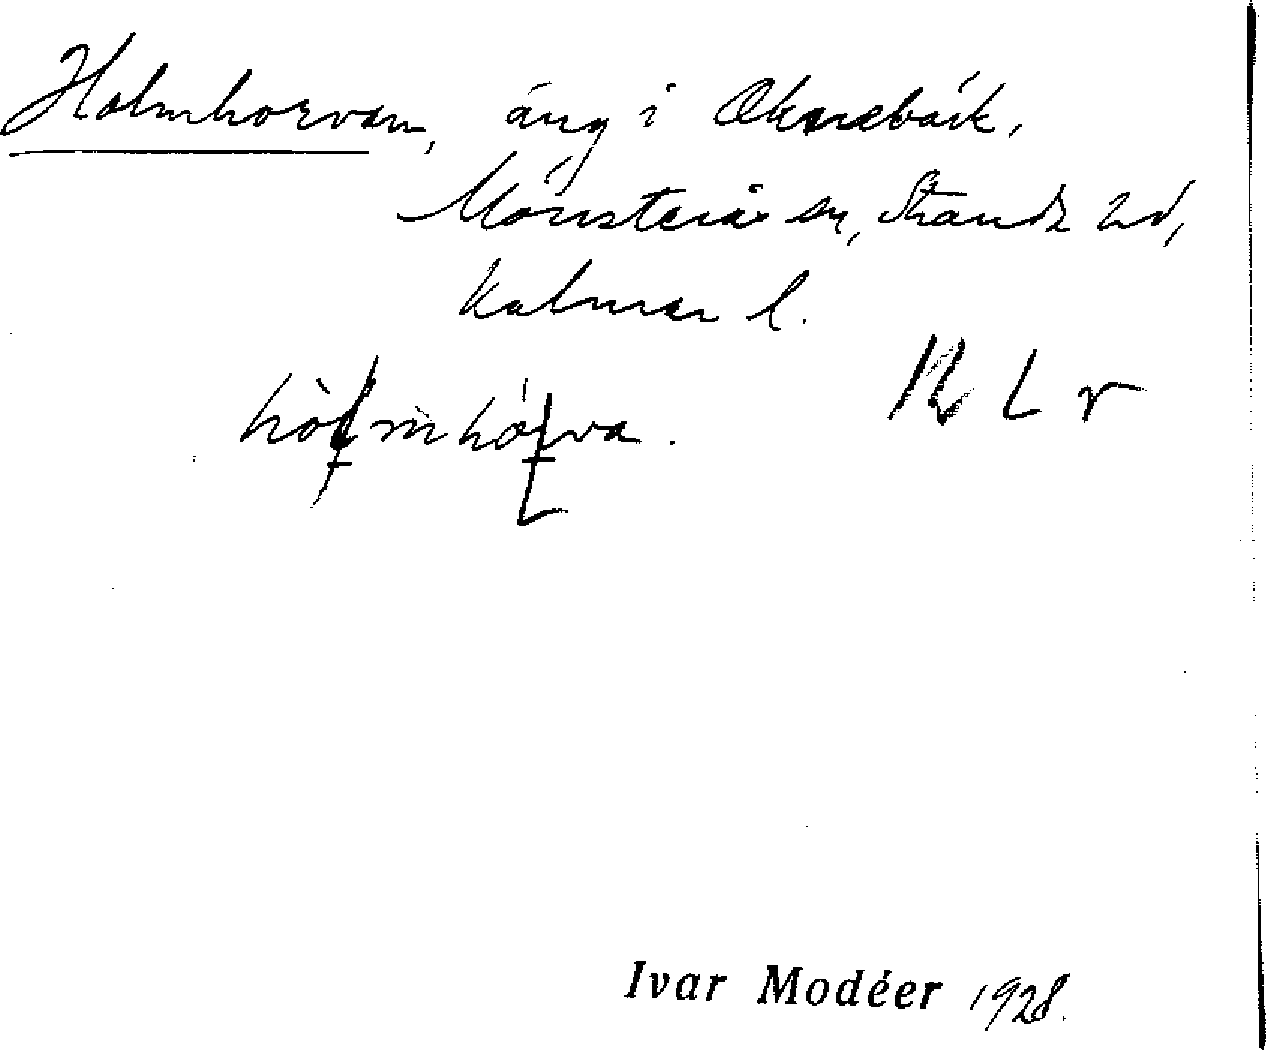 Holmhorvan, äng i Oknebäck,
Mönsterås sn, Stranda hd,
Kalmar l.
R L v
Ivar Modéer 1928.